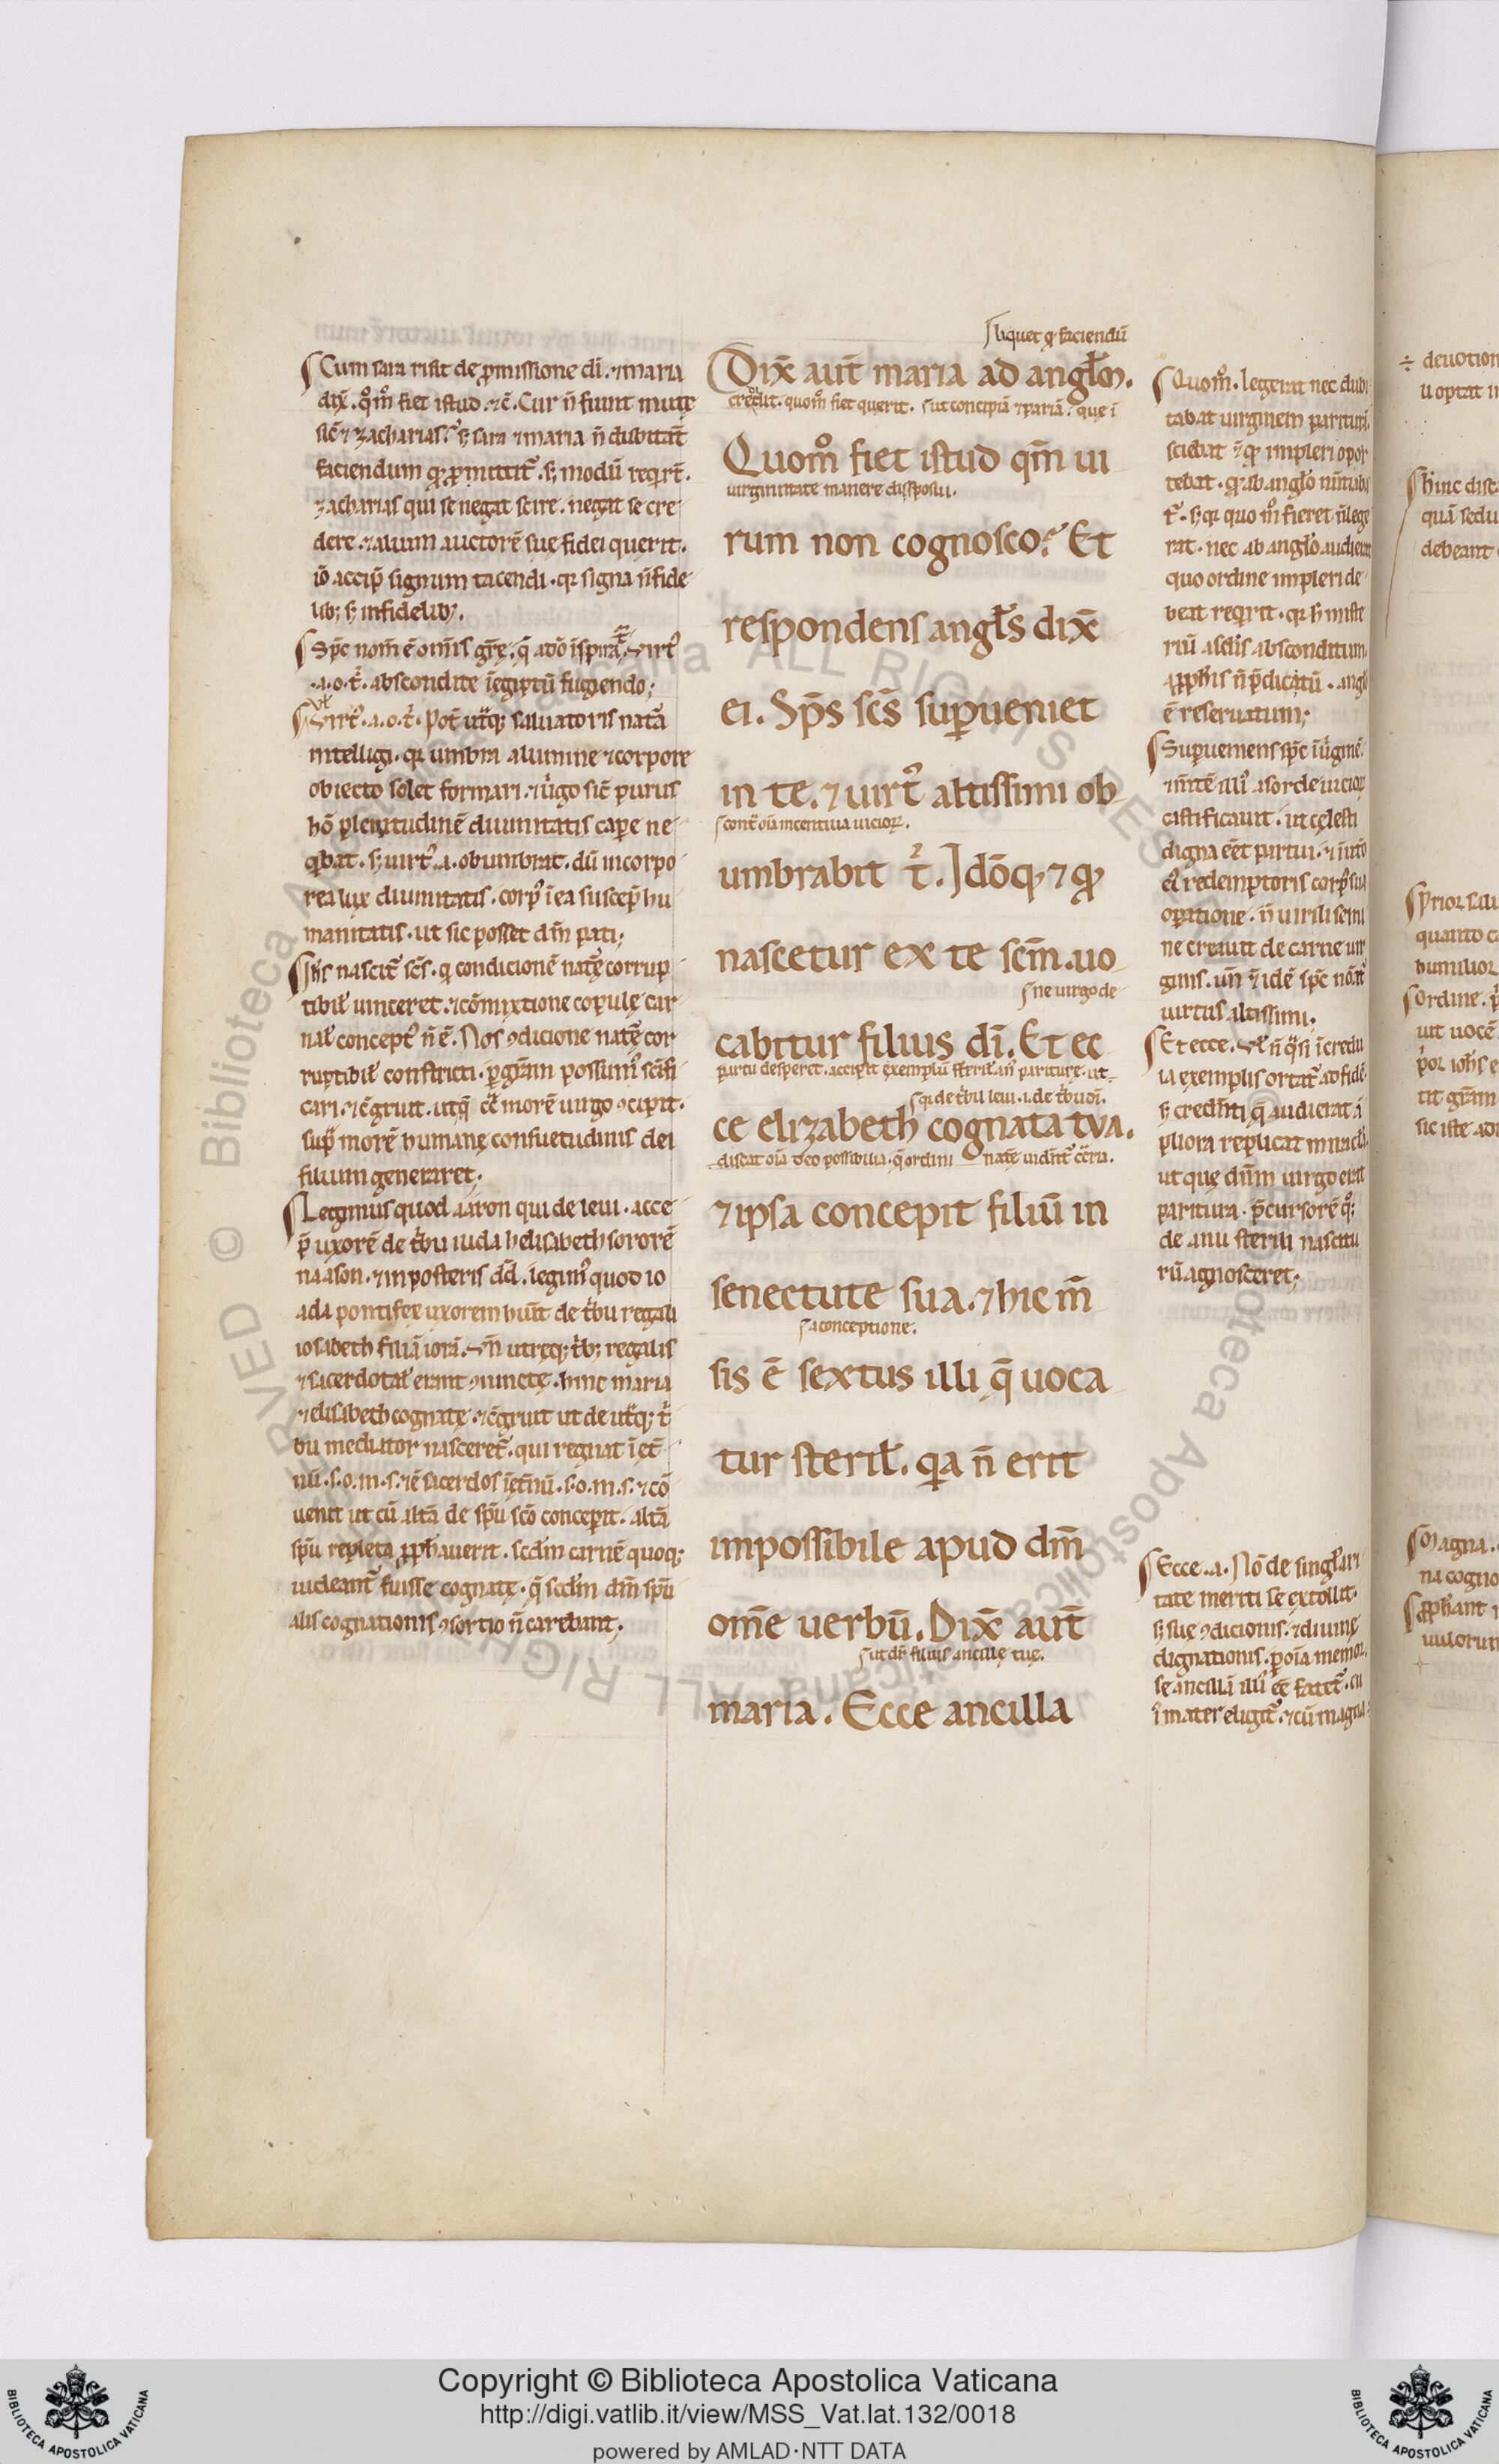 Cum sara risit de ꝓmissione di᷑. ⁊ maria
dix̄. qͦm̊ fiet istud. ⁊c̄. Cur ñ fiunt mutę
sic̄ ⁊ zacharias? sꝫ sara ⁊ maria ñ dubitant̄
faciendum qđ ꝓmittit᷑. sꝫ modū reqͥrt̄.
zacharias qui se negat scire. negat se cre
dere. ⁊ alium auctorē suę fidei querit.
iō accip̄ signum tacendi. qꝛ signa ñ fide
libꝫ sꝫ infidelibꝫ.
Sp̄c nom̄ ē
.a.o.t᷑. abscondite
Virtꝰ.a.o.t᷑. Pot̄ utͣqꝫ saluatoris natā
intelligi. qꝛ umbra a lumine ⁊ corpore
obiecto solet formari. ⁊ uͥgo sic̄ purus
hō plenitudinē diuinitatis capere ne
qͥbat. sꝫ uirtꝰ.a. obumbrat. dū incorpo
rea lux diuinitatis. corpꝰ ī ea suscep̄ hu
manitatis. ut sic posset dm̄ pati;
Ih̄s nascit᷑ sc̄s. qͥ condicionē natͣę corrup
tibil̄ uinceret. ⁊ cōmixtione copulę car
nal̄ conceptꝰ ñ ē. Nos ꝯdicione natͣę cor
ruptibil̄ constricti. ꝑ gr̄am possumꝰ sc̄ifi
cari. ⁊ cōgruit. ut q̄ morē uirgo ꝯcipit.
supͣ morē humanę consuetudinis dei
filium generaret;
Legimus quod aaron qui de leui. acce
p̄ uxorē de tͥbu iuda helisabeth sororē
naason. ⁊ in posteris dd̄. legimꝰ quod io
ada pontifex uxorem huīt de tͥbu regali
iosabeth filiā iorā. Vñ utręqꝫ tͥbꝫ regalis
⁊ sacerdotal̄ erant ꝯiunctę. hinc maria
⁊ elisabeth cognatę. ⁊ cōgruit ut de utͣqꝫ tͥ
bu mediator nasceret᷑. qui regnat ī et̄
nū. s.o.m.s. ⁊ ē sacerdos ī et̄nū. s.o.m.s. ⁊ cō
uenit ut cū altā de sp̄u sc̄o conceperit. altā
sp̄u repleta ꝓph̄auerit. scd̄m carnē quoqꝫ
uideant᷑ fuisse cognatę. q̄ scd̄m dm̄ sp̄u
alis cognationis ꝯsortio ñ carebant;
liquet qđ faciendū
Dix̄ aut̄ maria ad angl̄m.
credidit. quom̊ fiet querit. s. ut concipiā ⁊ pariā. que ī
Quom̊ fiet istud qm̄ ui
uirginitate manere disposui.
rum non cognosco? Et
respondens angl̄s dix̄
ei. Sp̄s sc̄s suꝑueniet
in te. ⁊ uirtꝰ altissimi ob
s. contͣ oīa incentiua uicioꝝ.
umbrabit tͥ. Idōqꝫ ⁊ qđ
nascetur ex te scm̄. uo
s. ne uirgo de
cabitur filius di᷑. Et ec
partu desperet. accipit exemplū steril̄ anꝰ pariturę. ut
s. qͥ de tͥbu leui. i. de tͥbu dī.
ce elizabeth cognata tua.
discat oīa deo possibilia. q̄ ordini natͣę uident᷑ cͦtͣria.
⁊ ipsa concepit filiū in
senectute sua. ⁊ hic m̄
s. a conceptione.
sis ē sextus illi q̄ uoca
tur steril̄. qͥa ñ erit
impossibile apud dm̄
om̄e uerbū. Dix̄ aut̄
s. ut dr̄ filius ancillę tuę.
maria. Ecce ancilla
Quom̊. legerat nec dubi
tabat uirginem parituram
sciebat ⁊ qđ impleri opor
tebat. qđ ab angl̄o nūtiaba
t᷑. sꝫ qꝛ quo m̊ fieret ñ lege
rat. nec ab angl̄o audierat
quo ordine impleri de
beat reqͥrit. qꝛ h̄ miste
riū a sclīs absconditum.
a ꝓph̄is ñ p̄dicatū. angl̄o
ē reseruatum;
Suꝑueniens sp̄c ī uͥginē.
castificauit. ut cęlesti
digna eēt partui. ⁊ ī utͦo
eiꝰ redemptoris corpꝰ sua
oꝑatione. ñ uirili semi
ne creauit de carne uir
ginis. uñ ⁊ idē sp̄c
uirtus altissimi.
Et ecce.
la exemplis ortat᷑ ad fidē.
sꝫ credenti q̄ audierat ā
pliora replicat miracl̄a.
ut que dn̄m uirgo erat
paritura. p̄cursorē qͦqꝫ
de anu sterili nascitu
rū agnosceret;
Ecce.a. Nō de singlāri
tate meriti se extollit.
sꝫ suę ꝯdicionis. ⁊ diuinę
dignationis. ꝑ oīa memor.
se ancillā illiꝰ eē fatet᷑. cu
iꝰ mater eligit᷑. ⁊ cū magna
÷ deuotion
u optat
hinc disc
quā sedu
debeant
Prior salu
quanto
humilior
Ordine.
uit uocē
tit gr̄am
sic iste
Magna.
na cogno
ꝓph̄ant
uulorum
Copyright © Biblioteca Apostolica Vaticana
http://digi.vatlib.it/view/MSS_Vat.lat.132/0018
powered by AMLAD·NTT DATA
BIBLIOTECA APOSTOLICA VATICANA
BIBLIOTECA APOSTOLICA VATICANA